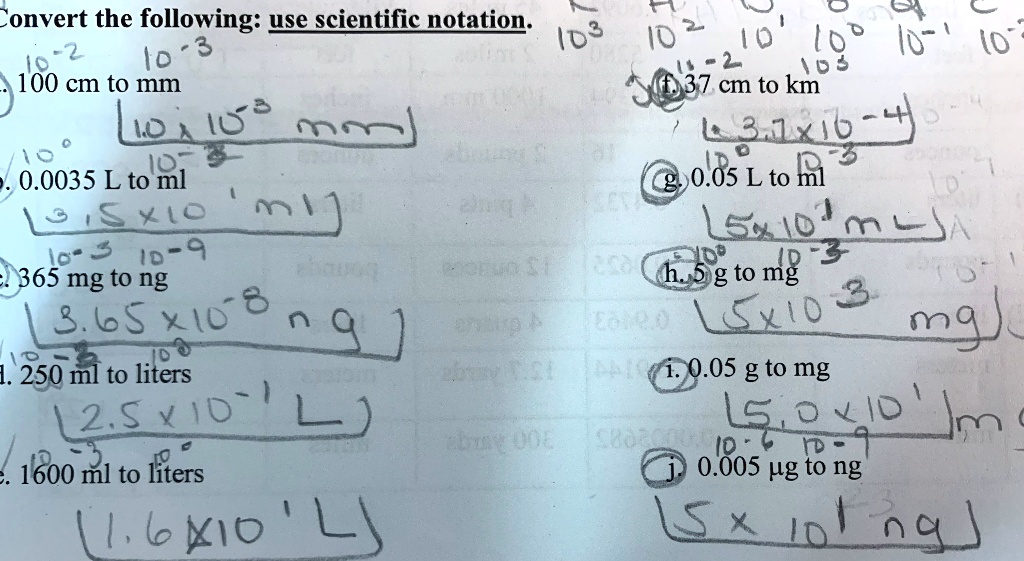 Convert the following: use scientific notation.
10³ 10² 10¹ 10⁰ 10⁻¹ 10
10⁻² 10⁻³
. 100 cm to mm
1.0 x 10⁻³ mm
10⁰ 10⁻³
. 0.0035 L to ml
3.5 x 10¹ ml
10⁻³ 10⁻⁹
. 365 mg to ng
3.65 x 10⁻⁸ ng
10⁻³ 10⁰
d. 250 ml to liters
2.5 x 10⁻¹ L
10⁻³ 10⁰
e. 1600 ml to liters
1.6 x 10¹ L
10⁻² 10³
f. 37 cm to km
3.7 x 10⁻⁴
10⁰ 10⁻³
g. 0.05 L to ml
5 x 10¹ mL
10⁰ 10⁻³
h. 5 g to mg
5 x 10³ mg
i. 0.05 g to mg
5.0 x 10¹ m
10⁻⁶ 10⁻⁹
j. 0.005 µg to ng
5 x 10¹ ng